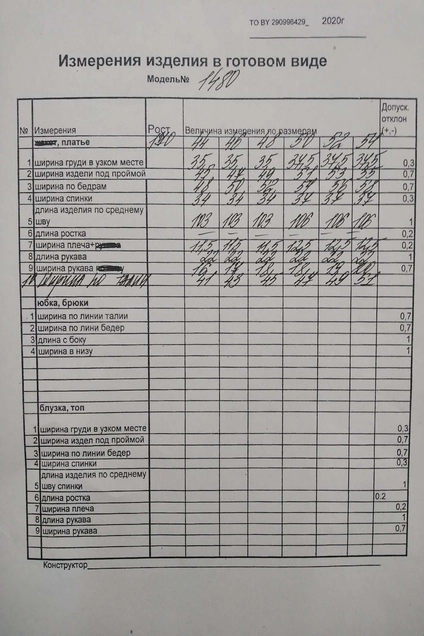 ТО BY 290996429_ 2020г
Измерения изделия в готовом виде
Модель№ 1480
№ Измерения Рост Величина измерения по размерам Допуск. отклон (+,-)
, платье 170 44 46 48 50 52 54
1 ширина груди в узком месте 35 35 35 34,5 34,5 34,5 0,3
2 ширина издели под проймой 45 47 49 51 53 55 0,7
3 ширина по бедрам 48 50 52 54 56 58 0,7
4 ширина спинки 34 34 34 37 37 37 0,3
длина изделия по среднему
5 шву 103 103 103 106 106 106 1
6 длина ростка 0,2
7 ширина плеча+ 11,5 11,5 11,5 12,5 12,5 12,5 0,2
8 длина рукава 22 22 22 22 22 22 1
9 ширина рукава 16 17 18 18 19 0,7
10 Ширина по талии 41 43 45 47 49 51
юбка, брюки
1 ширина по линии талии 0,7
2 ширина по лини бедер 0,7
3 длина с боку 1
4 ширина в низу 1
блузка, топ
1 ширина груди в узком месте 0,3
2 ширина издел под проймой 0,7
3 ширина по линии бедер 0,7
4 ширина спинки 0,3
длина изделия по среднему
5 шву спинки 1
6 длина ростка 0.2
7 ширина плеча 0,2
8 длина рукава 1
9 ширина рукава 0,7
Конструктор